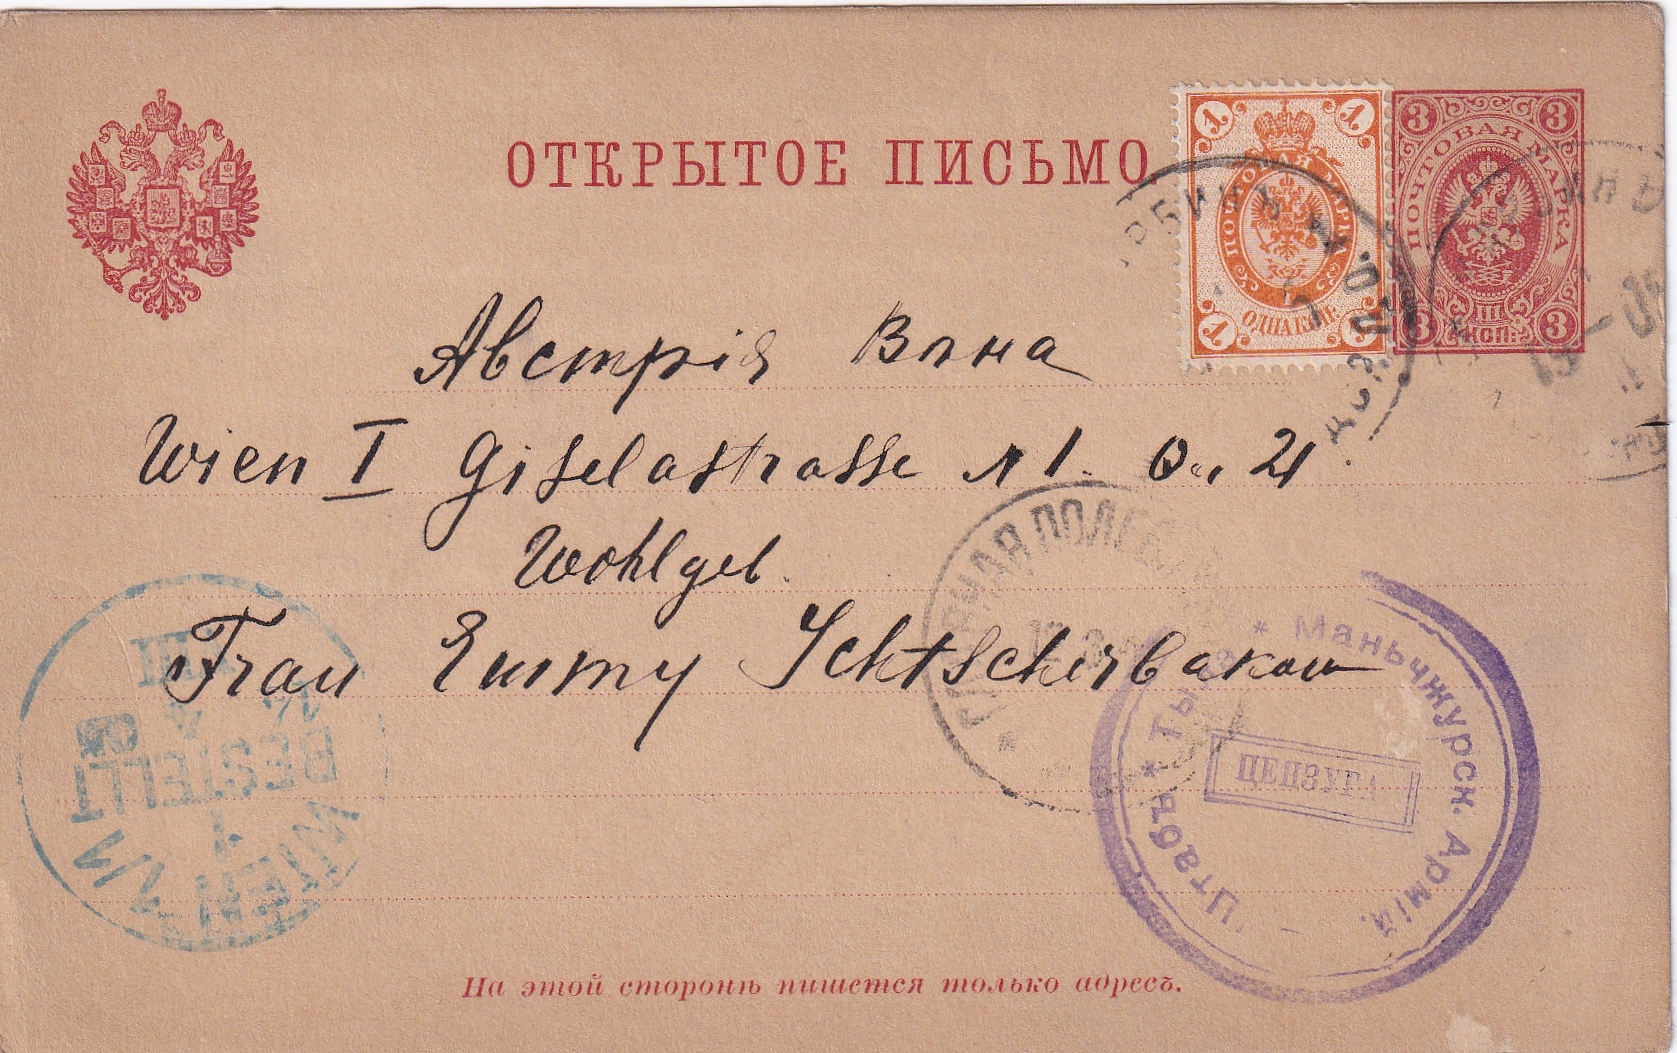 ОТКРЫТОЕ ПИСЬМО
1 1
1 1
ПОЧТОВАЯ МАРКА
3 3
ПОЧТОВАЯ МАРКА
3 3
Австрія Вѣна
Wien I Giselastrasse N 1. 21
Wohlgeb.
Frau Emmy Schtscherbakow
12.3
Штабъ * Тыла * Маньчжурск. Армій.
ЦЕНЗУРА
BESTELLT
WIEN
На этой сторонѣ пишется только адресъ.